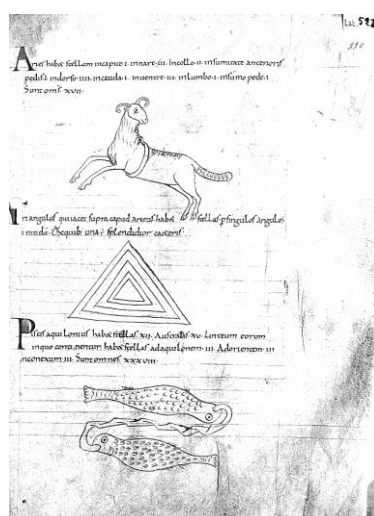 Lat. 592
Aries habet stellam in capite ·I· in nare ·III· in collo ·II· in sumitate anterioris
pedis ·I· in dorso ·IIII· in cauda ·I· in uentre ·III· in lumbo ·I· in sumo pede ·I·
Sunt oms xvii·
angulus qui iacet supra caput arietis habet stellas p singulos angulos
una splendidior ceteris
Pisces aquilonius habet stellas xii· Australis xv· Linteum eorum
inquo continentur habet stellas ad aquilonem ·III· Ad orientem III
in conexum III· Sunt omnes xxxviii·